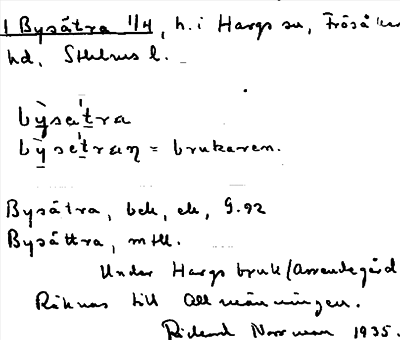 1 Bysätra 1/4, h. i Hargs sn, Frösåkers
hd, Sthlms l.
bỳ̱saṯra
bỳ̱seṯraɳ = brukaren.
Bysätra, bek, ek, G. 92
Bysättra, mtl.
Under Hargs bruk/Arrendegård
Räknas till Allmänningen.
Rickard Norrman 1935.